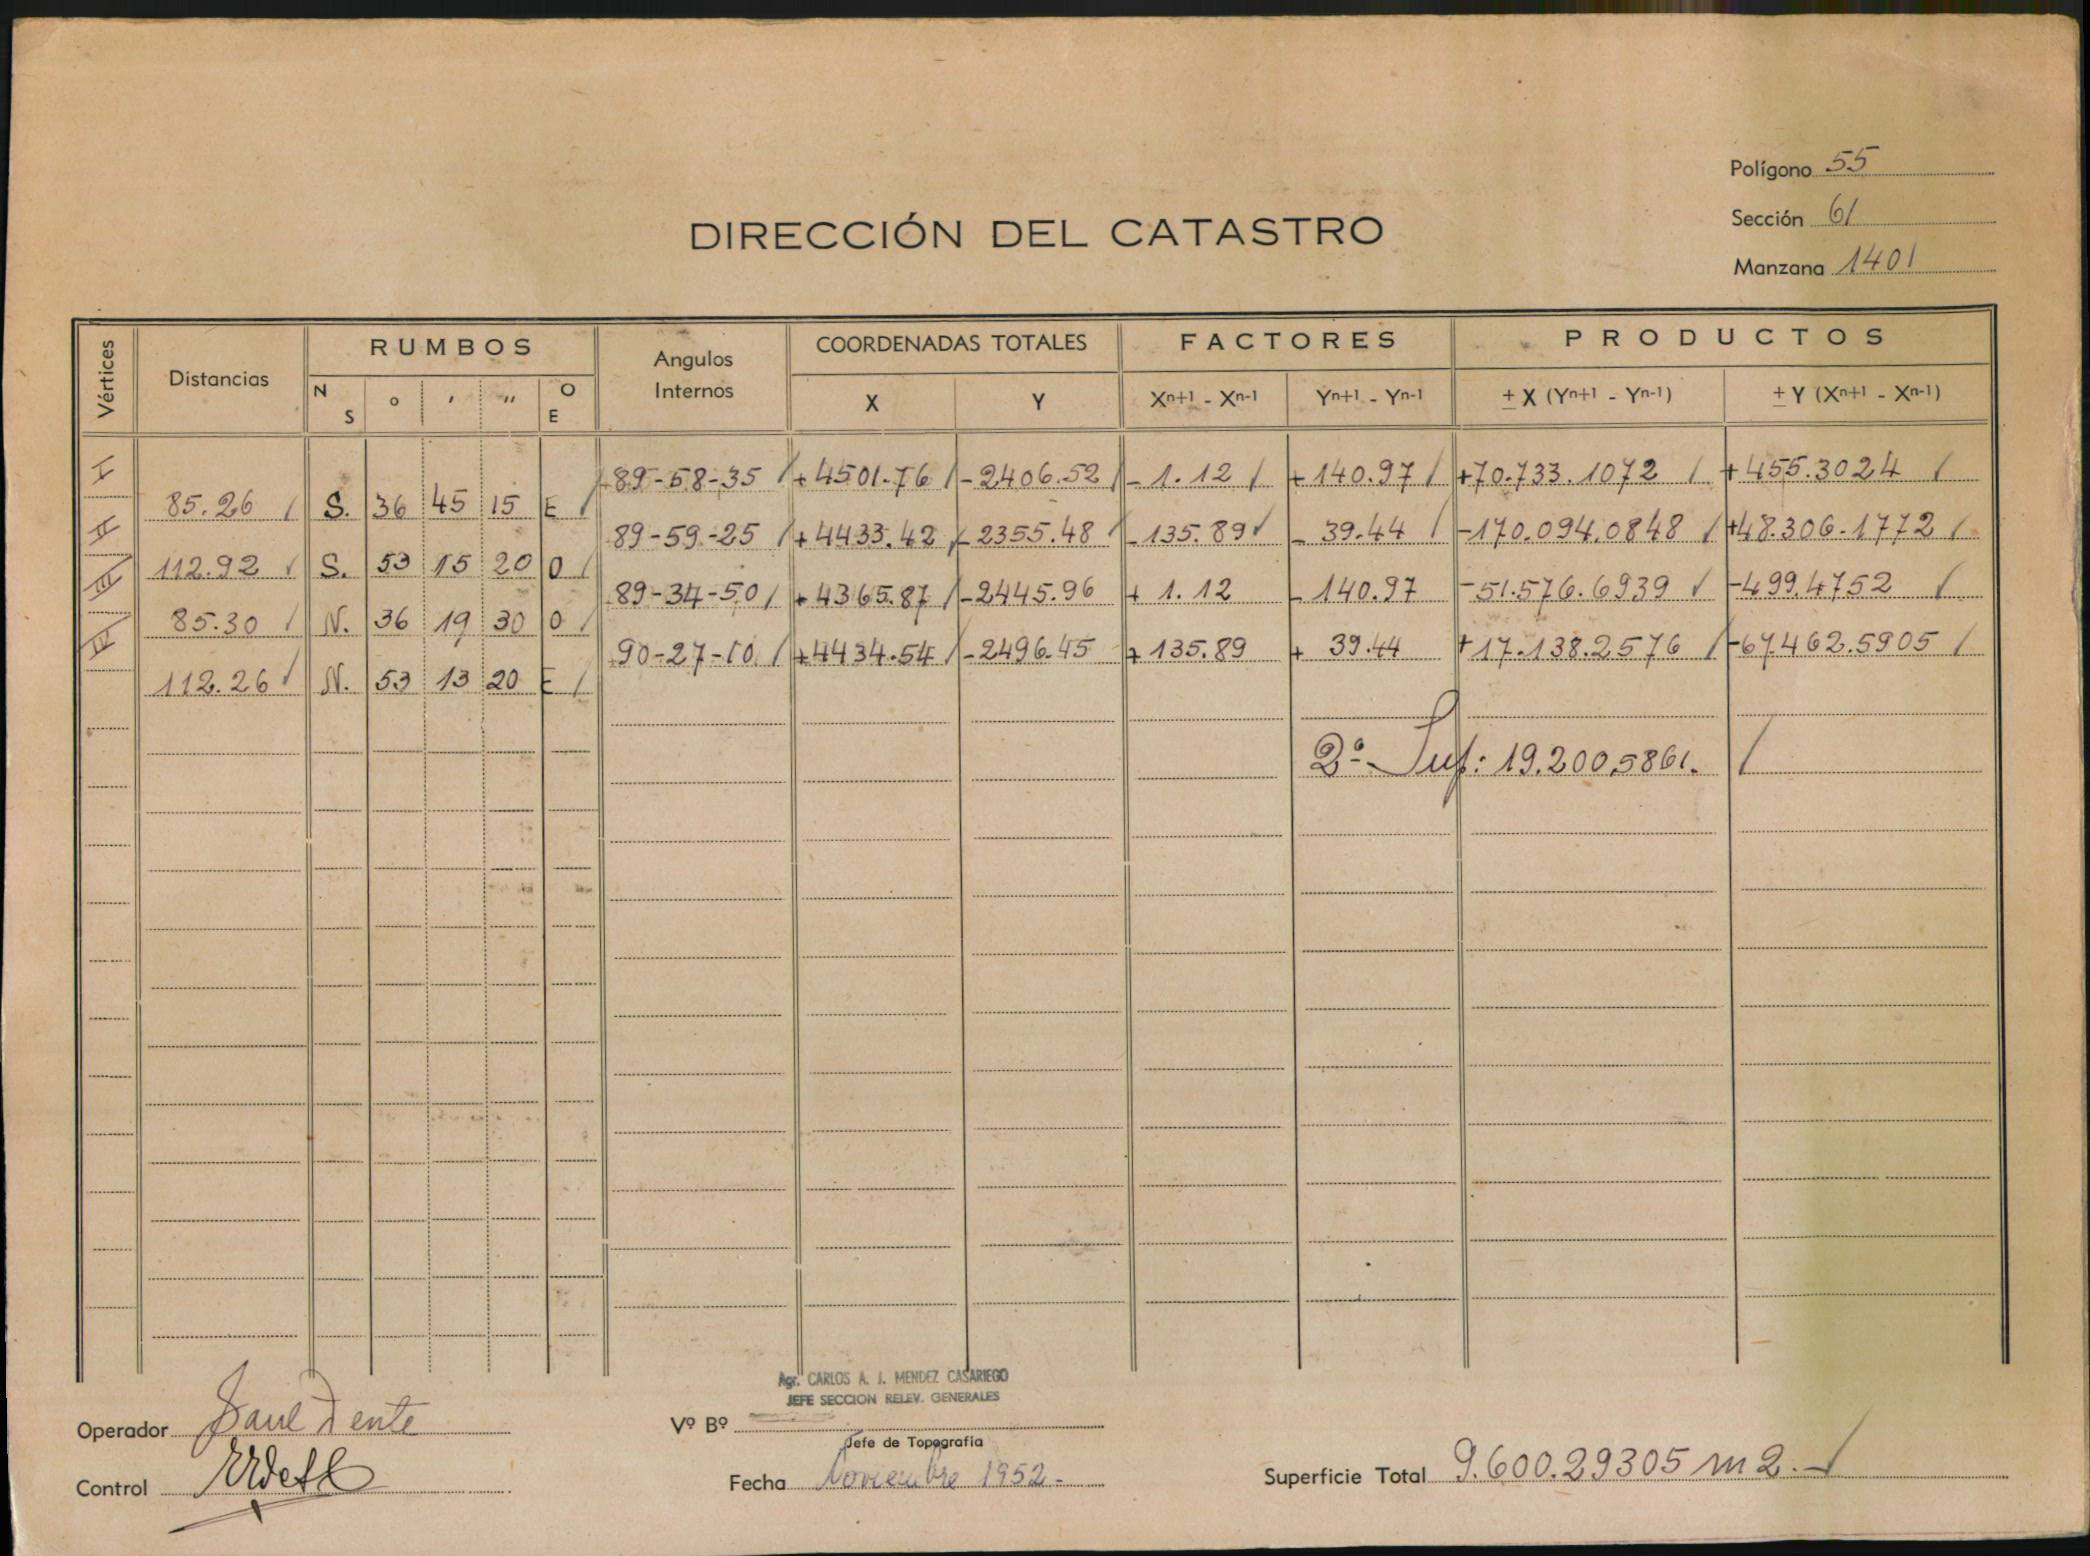 Polígono 55
Sección 61
Manzana 1401
DIRECCIÓN DEL CATASTRO
Vértices Distancias RUMBOS Angulos Internos COORDENADAS TOTALES FACTORES PRODUCTOS
N S o ′ ″ O E X Y Xn+1 - Xn-1 Yn+1 - Yn-1 ± X (Yn+1 - Yn-1) ± Y (Xn+1 - Xn-1)
I 89-58-35 +4501.76 -2406.52 -1.12 +140.97 +70.733.1072 +455.3024
85.26 S. 36 45 15 E
II 89-59-25 +4433.42 -2355.48 -135.89 -39.44 -170.094.0848 +48.306.1772
112.92 S. 53 15 20 O
III 89-34-50 +4365.87 -2445.96 +1.12 -140.97 -51.576.6939 -499.4752
85.30 N. 36 19 30 O
IV 90-27-10 +4434.54 -2496.45 +135.89 +39.44 +17.138.2576 -67.462.5905
112.26 N. 53 13 20 E
2ª Suf: 19.200,5861.
Agr. CARLOS A. J. MENDEZ CASARIEGO
JEFE SECCION RELEV. GENERALES
Operador Saul Dente
Vº Bº
Jefe de Topografía
Control
Fecha Noviembre 1952.-
Superficie Total 9.600.29305 m2.